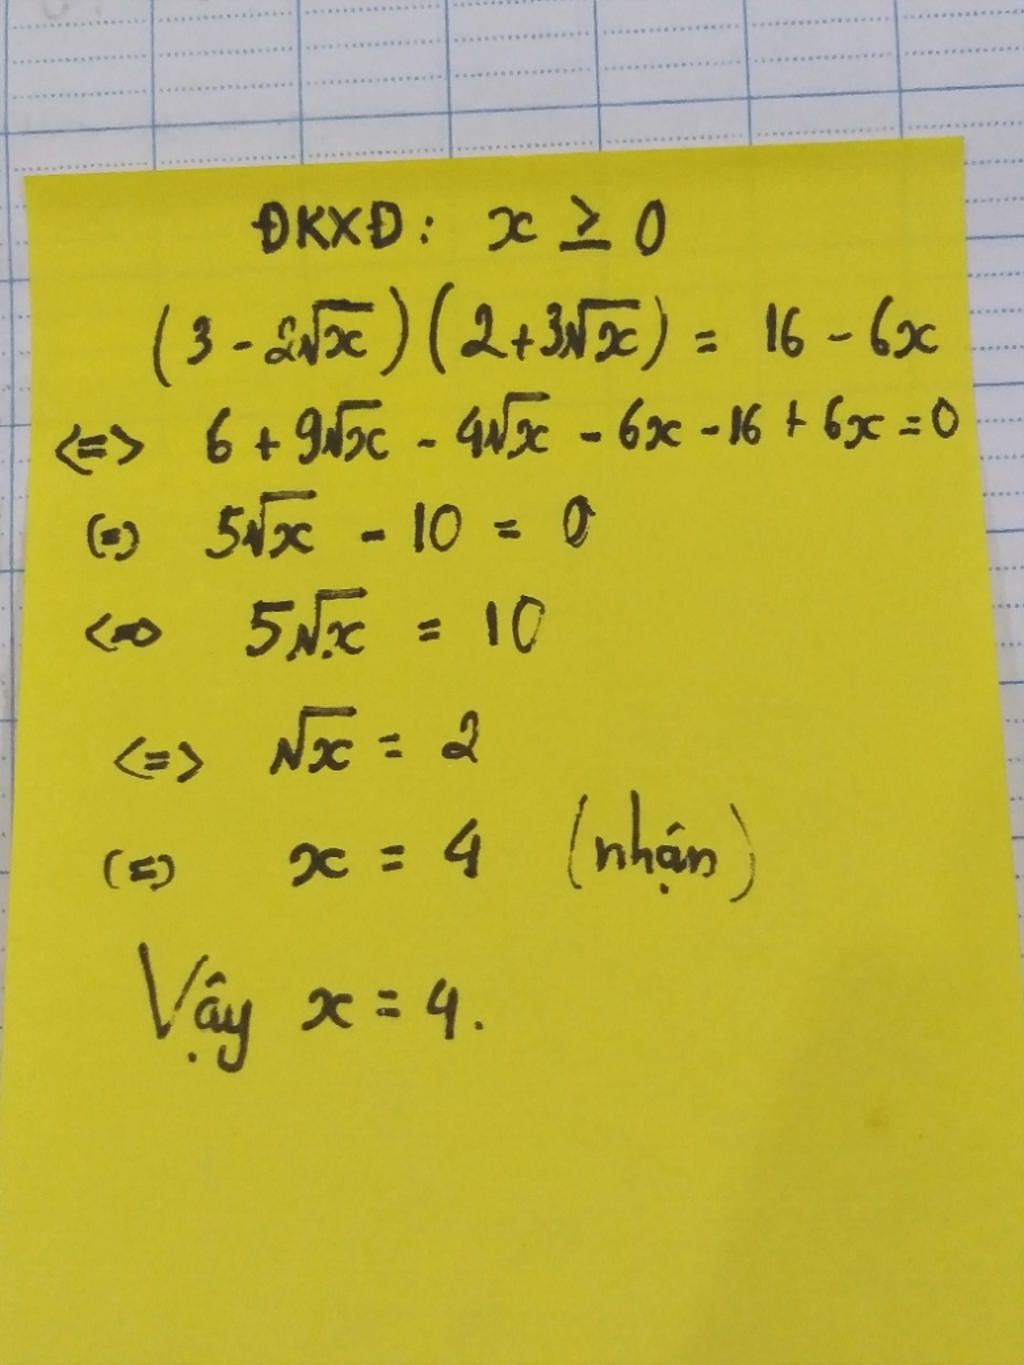 ĐKXĐ: x ≥ 0
(3 - 2√x)(2 + 3√x) = 16 - 6x
<=> 6 + 9√x - 4√x - 6x - 16 + 6x = 0
(=) 5√x - 10 = 0
<=> 5√x = 10
<=> √x = 2
(=) x = 4 (nhận)
Vậy x = 4.